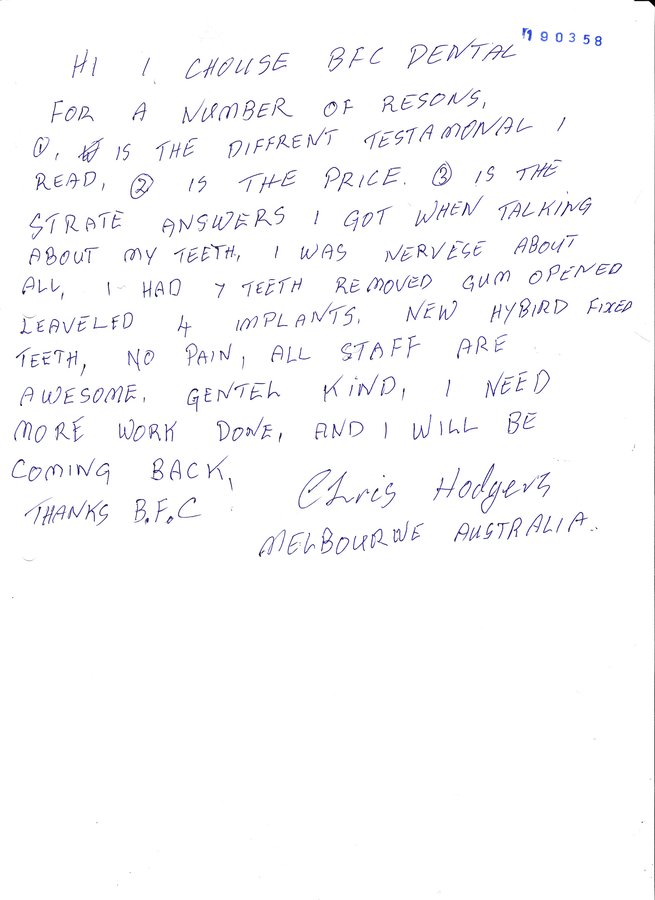 190358
HI I CHOUSE BFC DENTAL
FOR A NUMBER OF RESONS,
①, IS THE DIFFRENT TESTAMONAL I
READ, ② IS THE PRICE. ③ IS THE
STRATE ANSWERS I GOT WHEN TALKING
ABOUT MY TEETH, I WAS NERVESE ABOUT
ALL, I HAD 7 TEETH REMOVED GUM OPENED
LEAVELED 4 IMPLANTS. NEW HYBIRD FIXED
TEETH, NO PAIN, ALL STAFF ARE
AWESOME. GENTEL KIND, I NEED
MORE WORK DONE, AND I WILL BE
COMING BACK,
THANKS B.F.C
Chris Hodgers
MELBOURNE AUSTRALIA..